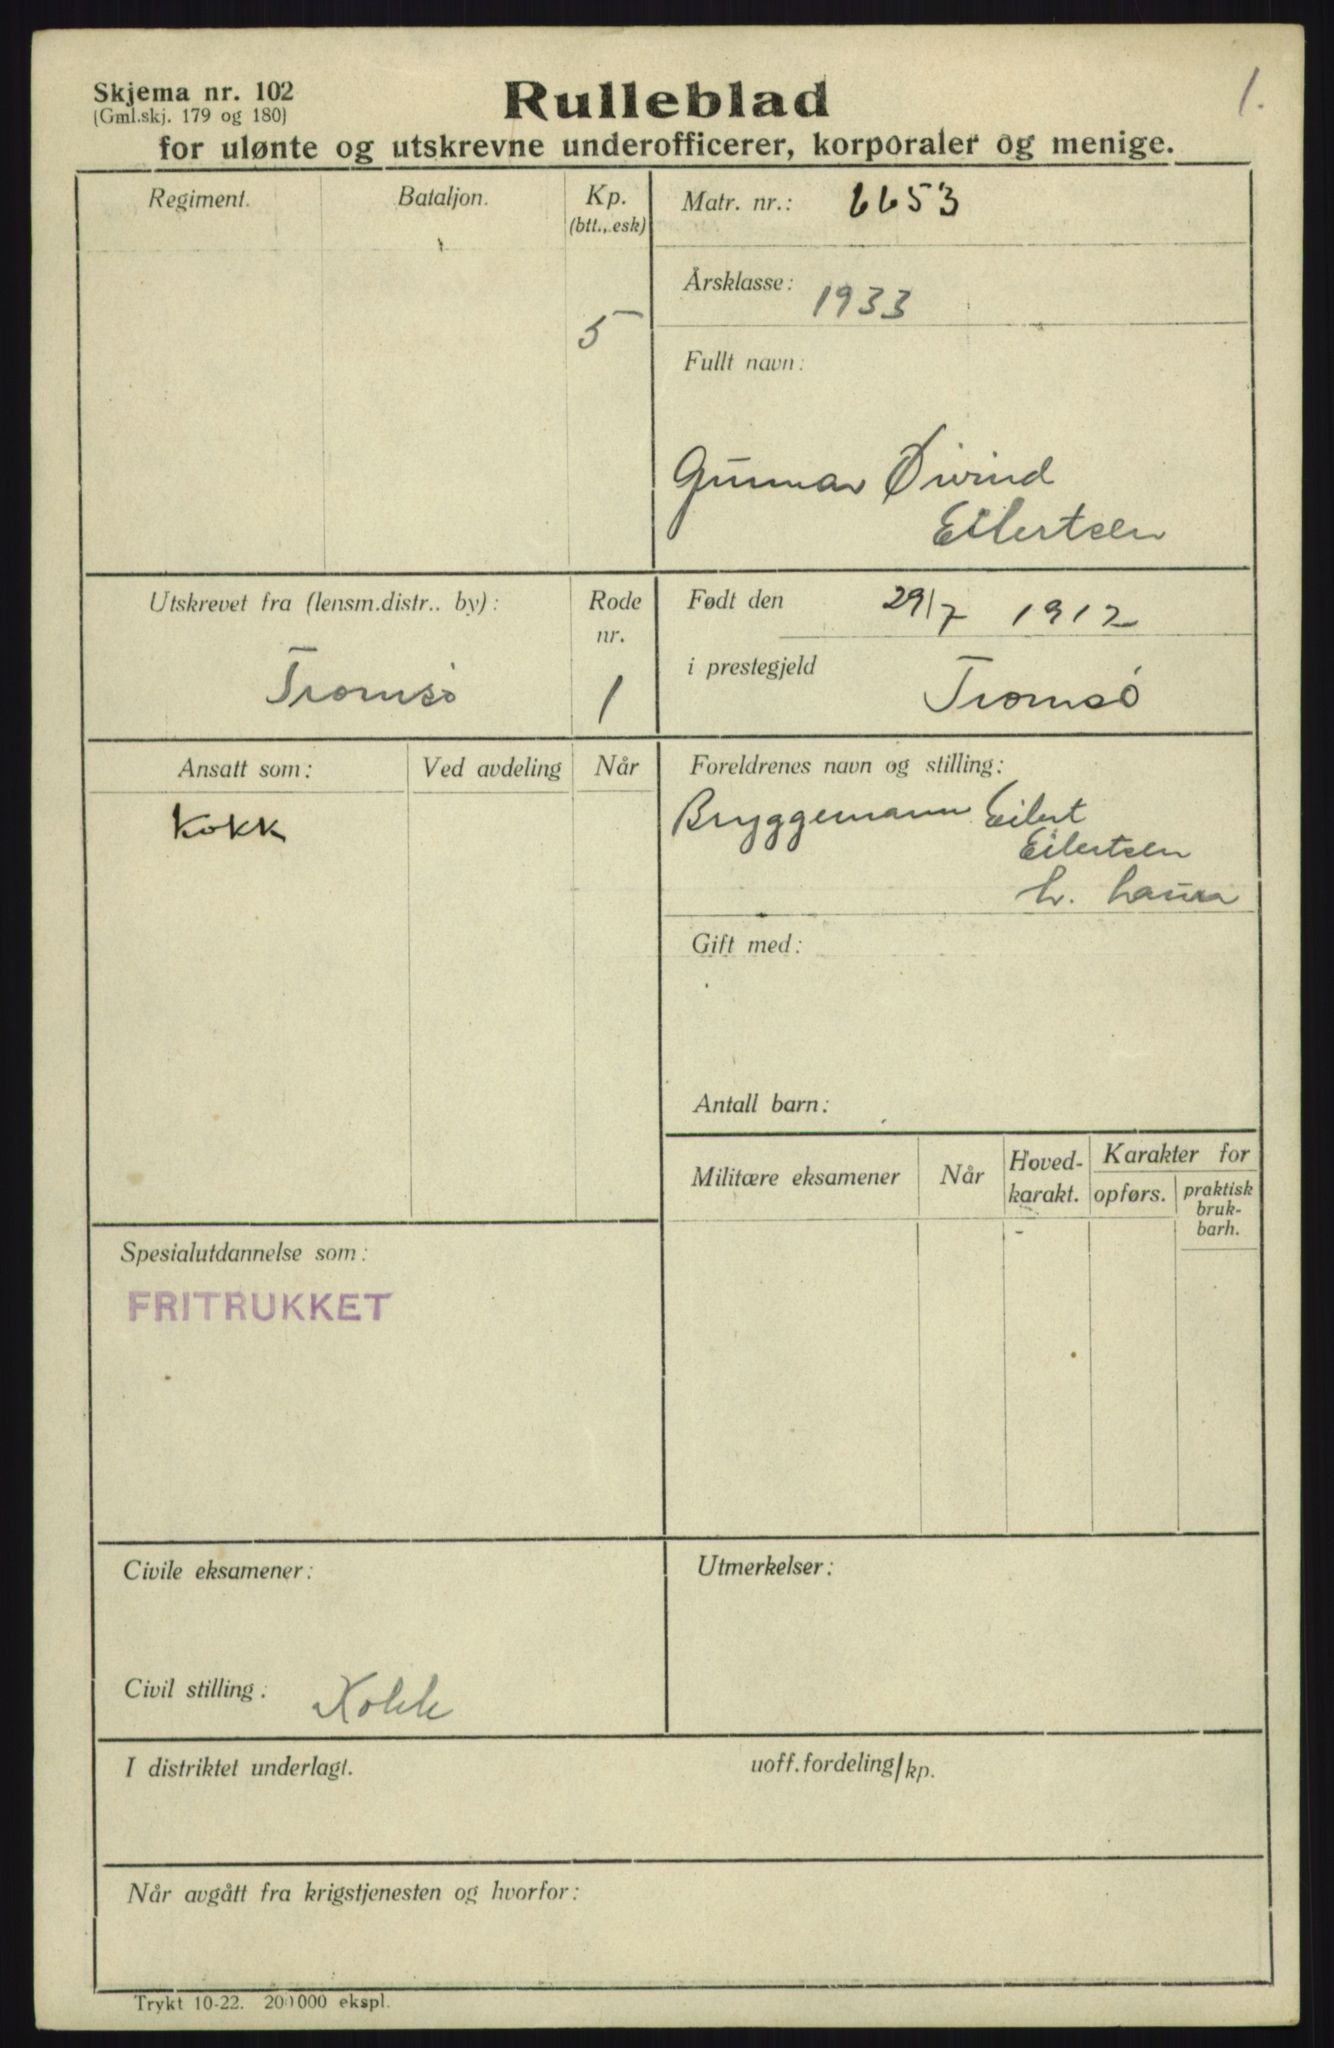 1.
Skjema nr. 102
(Gml.skj. 179 og 180)
Rulleblad
for ulønte og utskrevne underofficerer, korporaler og menige.
Regiment.
Bataljon.
Kp.
(btt., esk)
5
Matr. nr.: 6653
Årsklasse: 1933
Fullt navn:
Gunnar Øivind
Eilertsen
Utskrevet fra (lensm.distr.. by):
Tromsö
Rode
nr.
1
Født den 29/7 1912
i prestegjeld Tromsö
Ansatt som:
Ved avdeling
Når
Kokk
Foreldrenes navn og stilling:
Bryggemann Eilert
Eilertsen
h. Laura
Gift med:
Antall barn:
Militære eksamener
Når
Hoved-
karakt.
Karakter for
opførs.
praktisk
bruk-
barh.
Spesialutdannelse som:
FRITRUKKET
Civile eksamener:
Civil stilling: Kokk
Utmerkelser:
I distriktet underlagt.
uoff.fordeling/kp.
Når avgått fra krigstjenesten og hvorfor:
Trykt 10-22. 200000 ekspl.